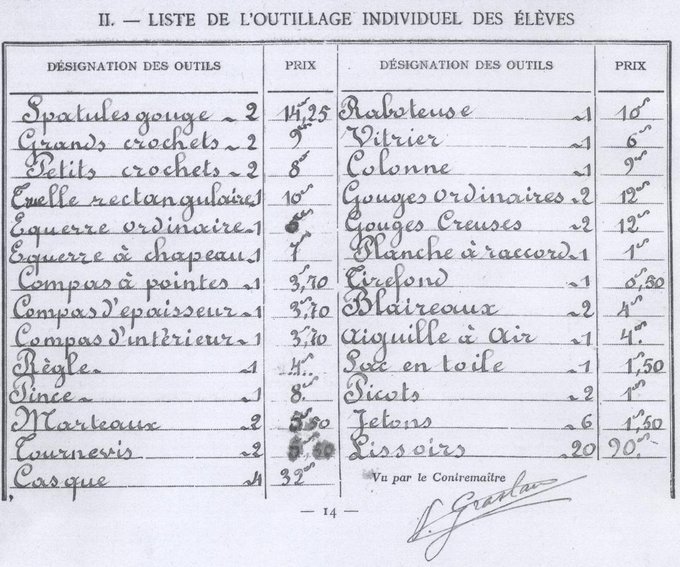 II. — LISTE DE L'OUTILLAGE INDIVIDUEL DES ÉLÈVES
DÉSIGNATION DES OUTILS PRIX DÉSIGNATION DES OUTILS PRIX
Spatules gouge - 2 14,25 Raboteuse - 1 10
Grands crochets - 2 9 Vitrier - 1 6
Petits crochets - 2 8 Colonne - 1 9
Truelle rectangulaire 1 10 Gouges ordinaires - 2 12
Equerre ordinaire - 1 Gouges Creuses - 2 12
Equerre à chapeau - 1 7 Planche à raccord - 1 1
Compas à pointes - 1 3,70 Tirefond - 1 0,50
Compas d'epaisseur - 1 3,70 Blaireaux - 2 4
Compas d'intérieur - 1 3,70 Aiguille à Air - 1 4
Règle - 1 4 Sac en toile - 1 1,50
Pince - 1 8 Picots - 2 1
Marteaux - 2 5,50 Jetons - 6 1,50
Tournevis - 2 5,50 Lissoirs - 20 90
Casque - 4 32 Vu par le Contremaître
— 14 —